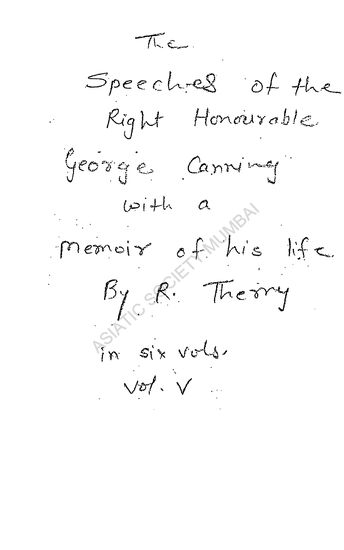 The
Speeches of the
Right Honourable
George Canning
with a
memoir of his life
By R. Therry
in six vols.
Vol. V
ASIATIC SOCIETY, MUMBAI